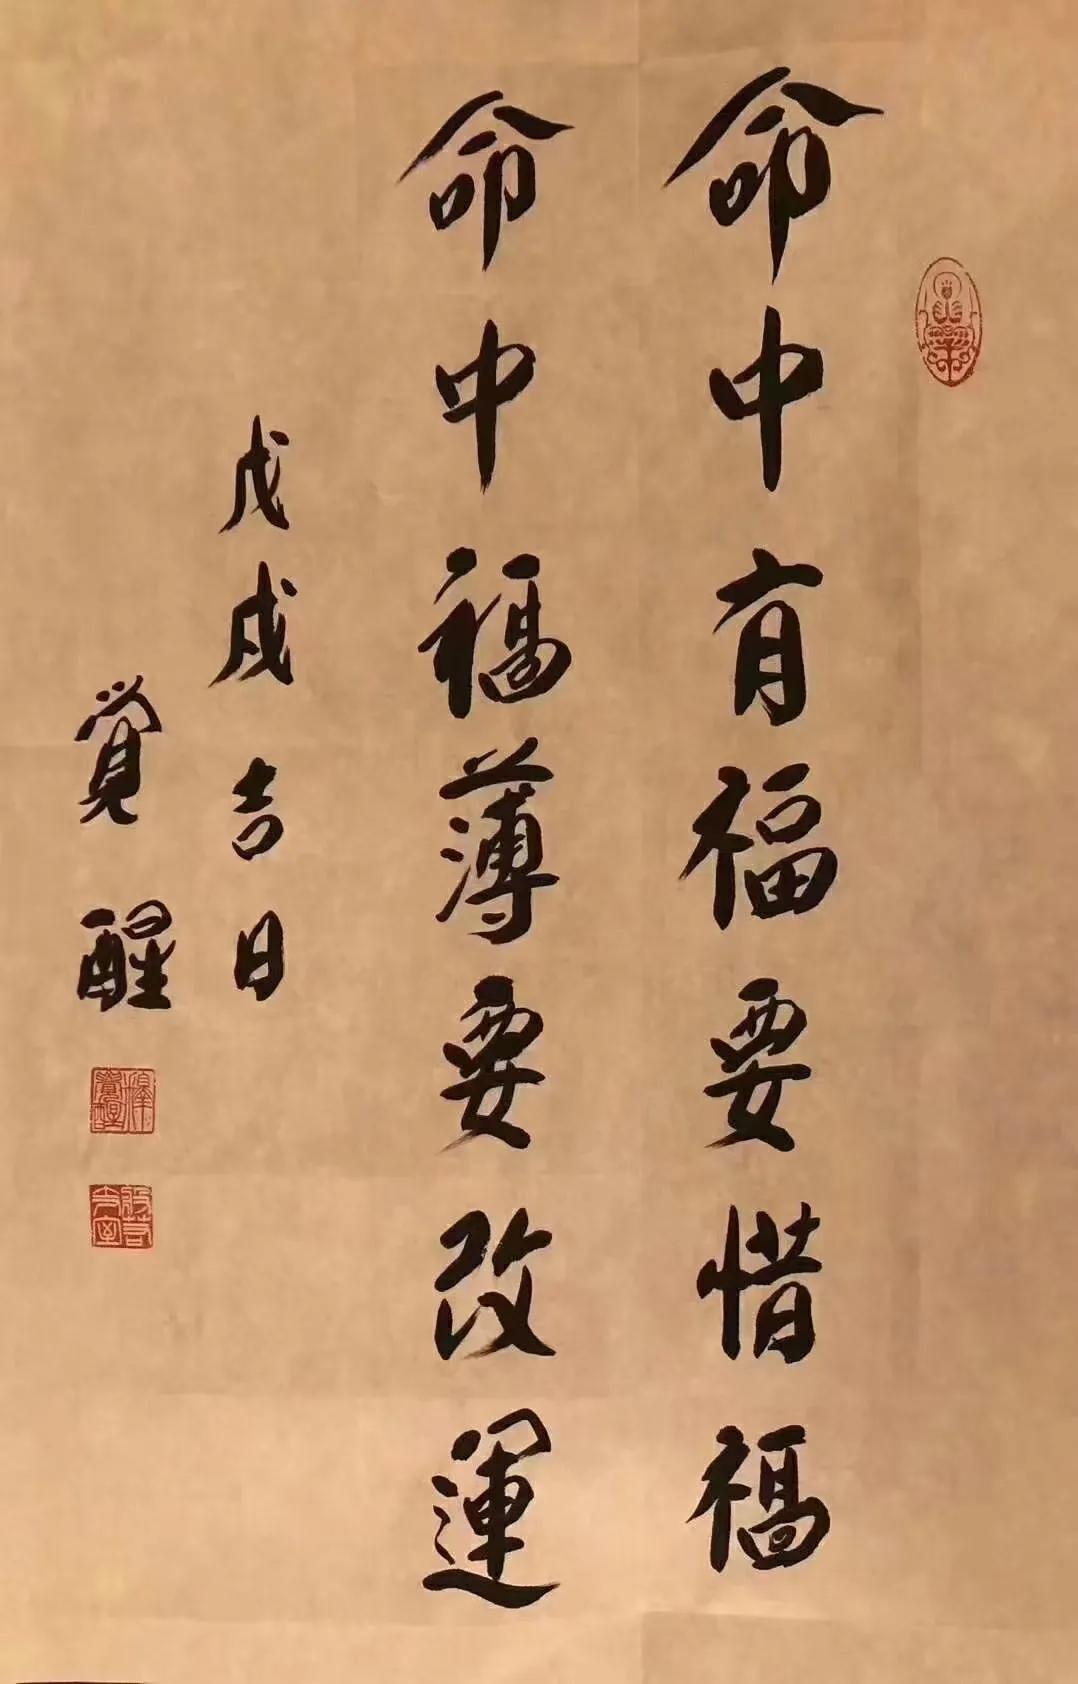 命中有福要惜福
命中福薄要改運
戊戌吉日
覺醒